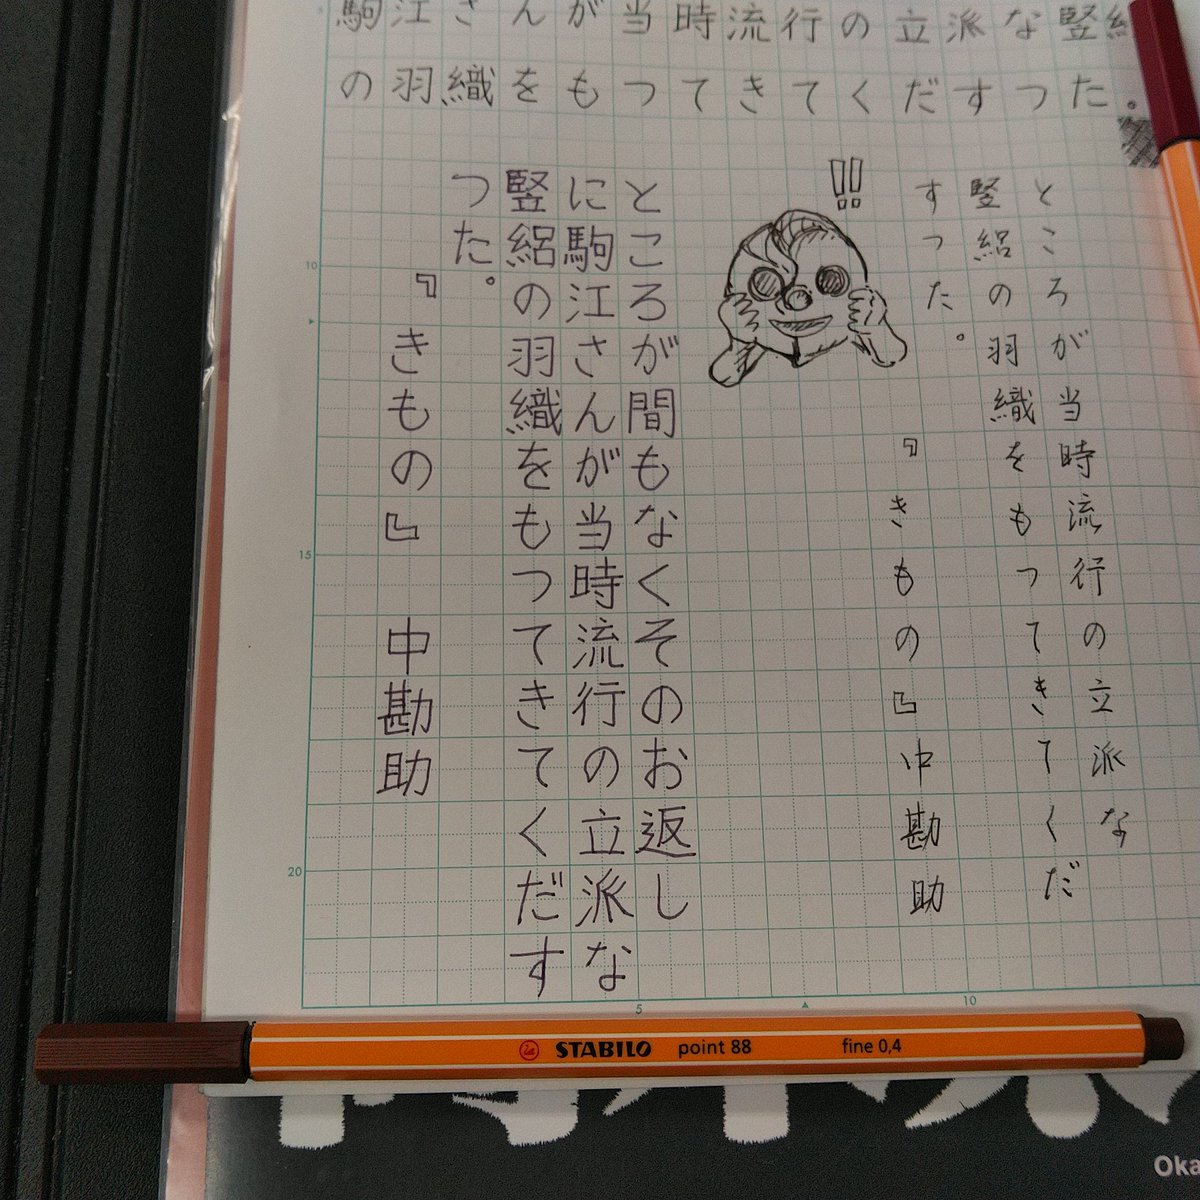 駒江さんが当時流行の立派な竪絽
の羽織をもつてきてくだすつた.
ところが当時流行の立派な
竪絽の羽織をもつてきてくだ
すつた。
『きもの』中勘助
!!
ところが間もなくそのお返し
に駒江さんが当時流行の立派な
竪絽の羽織をもつてきてくだす
つた。
『きもの』 中勘助
10
15
20
5
10
STABILO point 88 fine 0,4
Oka